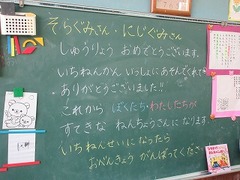 そらぐみさん・にじぐみさん
しゅうりょう おめでとうございます。
いちねんかん いっしょにあそんでくれて
ありがとうございました!!
これから ぼくたち・わたしたちが
すてきな ねんちょうさんになります
いちねんせいになったら
おべんきょう がんばってくださ